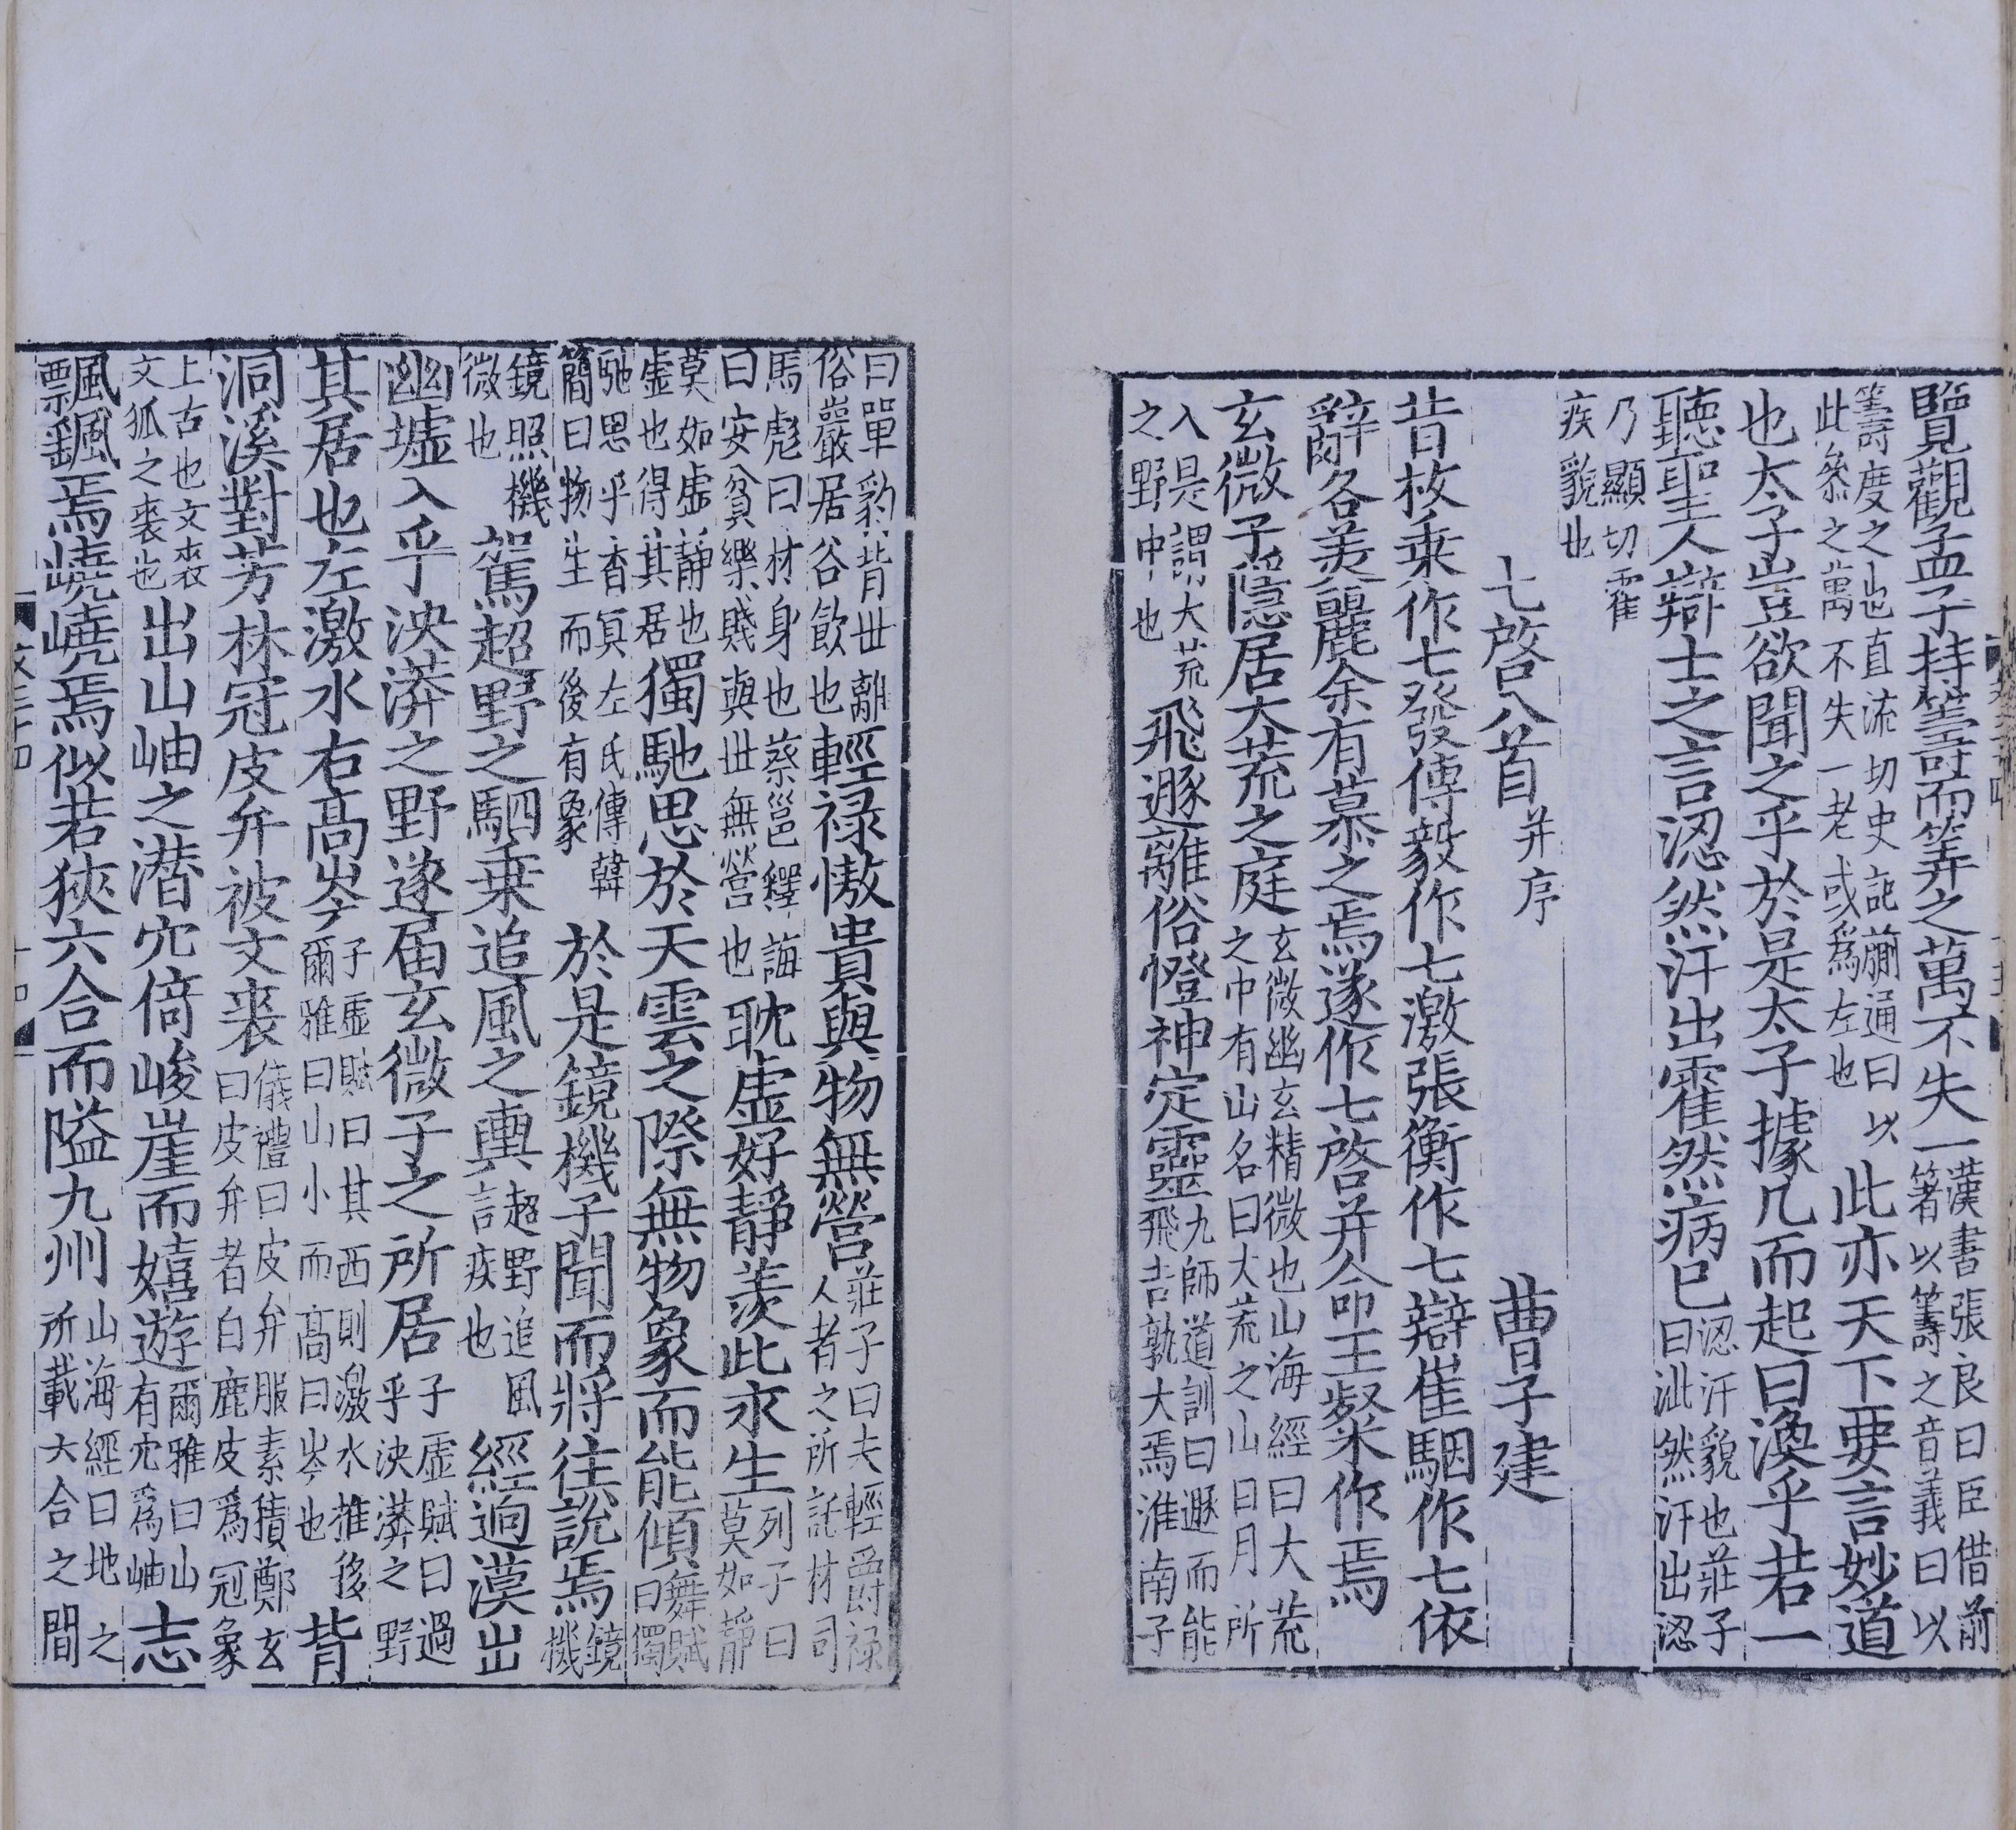 覽觀孟子持籌而筭之萬不失一漢書張良曰臣借前箸以籌之音義曰以
籌度之也直流切史記蒯通曰以此叅之萬不失一老或爲左也此亦天下要言妙道
也太子豈欲聞之乎於是太子據几而起曰渙乎若一
聽聖人辯士之言涊然汗出霍然病已涊汗貌也莊子曰泚然汗出涊
乃顯切霍疾貌也
七啓八首并序　曹子建
昔枚乗作七發傅毅作七激張衡作七辯崔駰作七依
辭各美麗余有慕之焉遂作七啓并命王粲作焉
玄微子隱居大荒之庭玄微幽玄精微也山海經曰大荒之中有山名曰大荒之山日月所
入是謂大荒之野中也飛遯離俗澄神定靈九師道訓曰遯而能飛吉孰大焉淮南子
曰單豹背世離俗巖居谷飲也輕禄慠貴與物無營莊子曰夫輕爵禄人者之所託材司
馬彪曰材身也蔡邕釋誨曰安貧樂賤與世無營也耽虚好靜羨此永生列子曰莫如靜
莫如虚靜也虚也得其居獨馳思於天雲之際無物象而能傾舞賦曰獨
馳思乎杳冥左氏傳韓簡曰物生而後有象於是鏡機子聞而將往說焉鏡機
鏡照機微也駕超野之駟乗追風之輿超野追風言疾也經逈漠出
幽墟入乎泱漭之野遂届玄微子之所居子虚賦曰過乎泱漭之野
其居也左激水右高岑子虚賦曰其西則激水推移爾雅曰山小而高曰岑也背
洞溪對芳林冠皮弁被文裘儀禮曰皮弁服素積鄭玄曰皮弁者白鹿皮爲冠象
上古也文裘文狐之裘也出山岫之潜穴倚峻崖而嬉遊爾雅曰山有穴爲岫志
飄颻焉嶢嶢焉似若狹六合而隘九州山海經曰地之所載六合之間